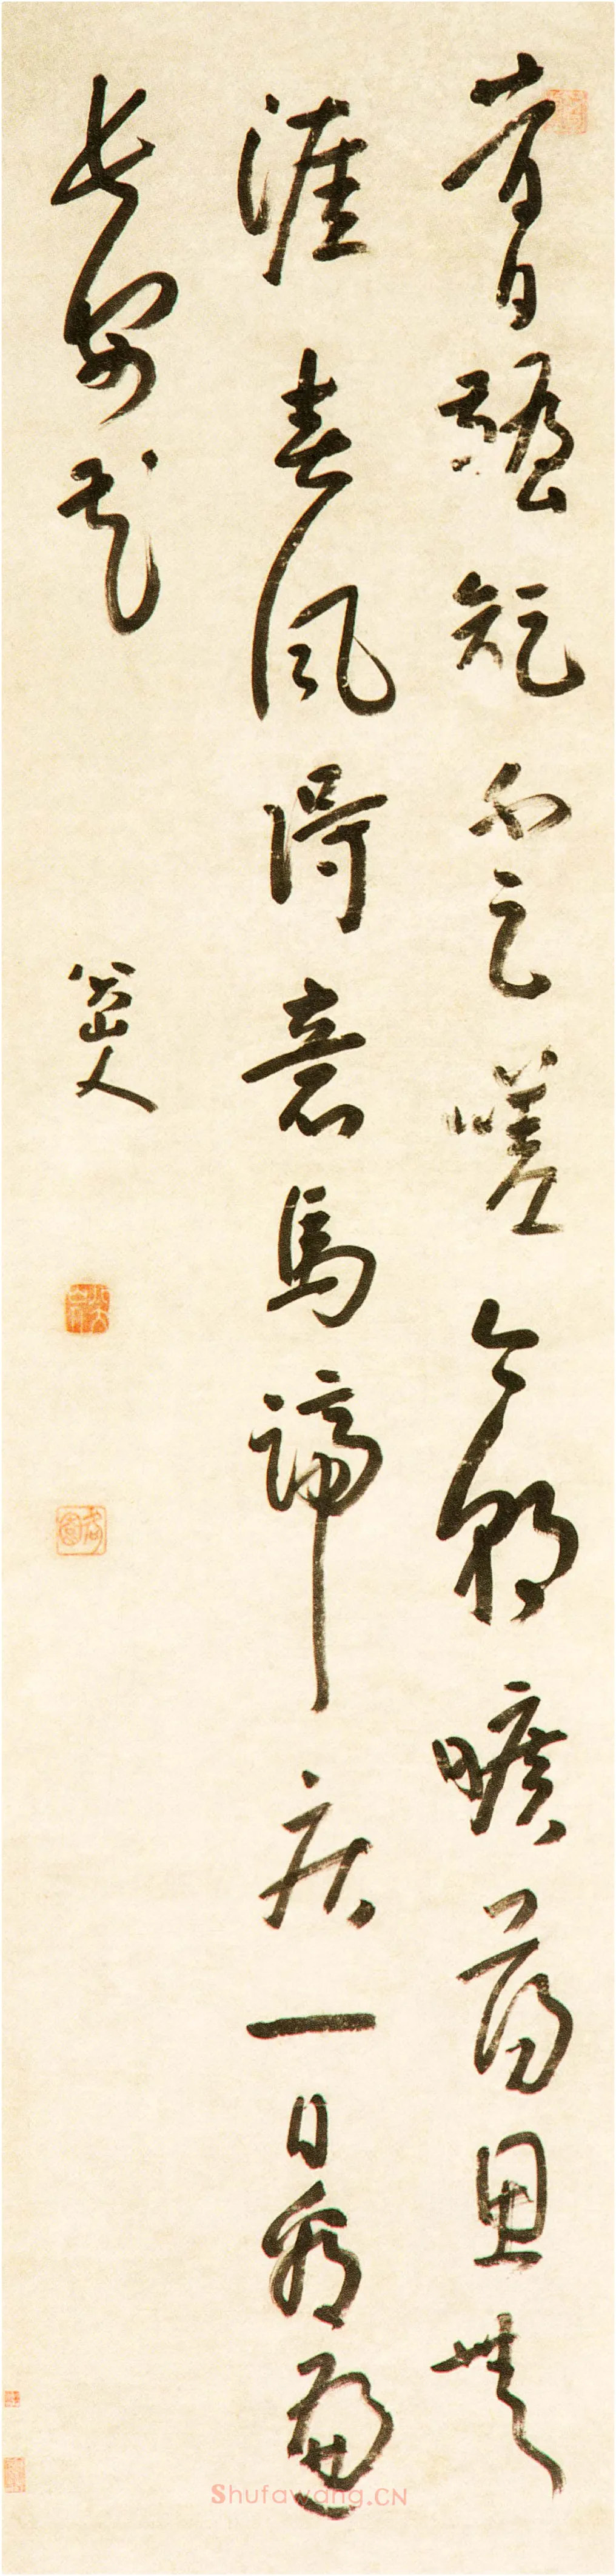 昔日短不足嗟今朝曠蕩恩無
涯春風得意馬蹄疾一日看遍
長安花
八大山人
Shufawang.CN